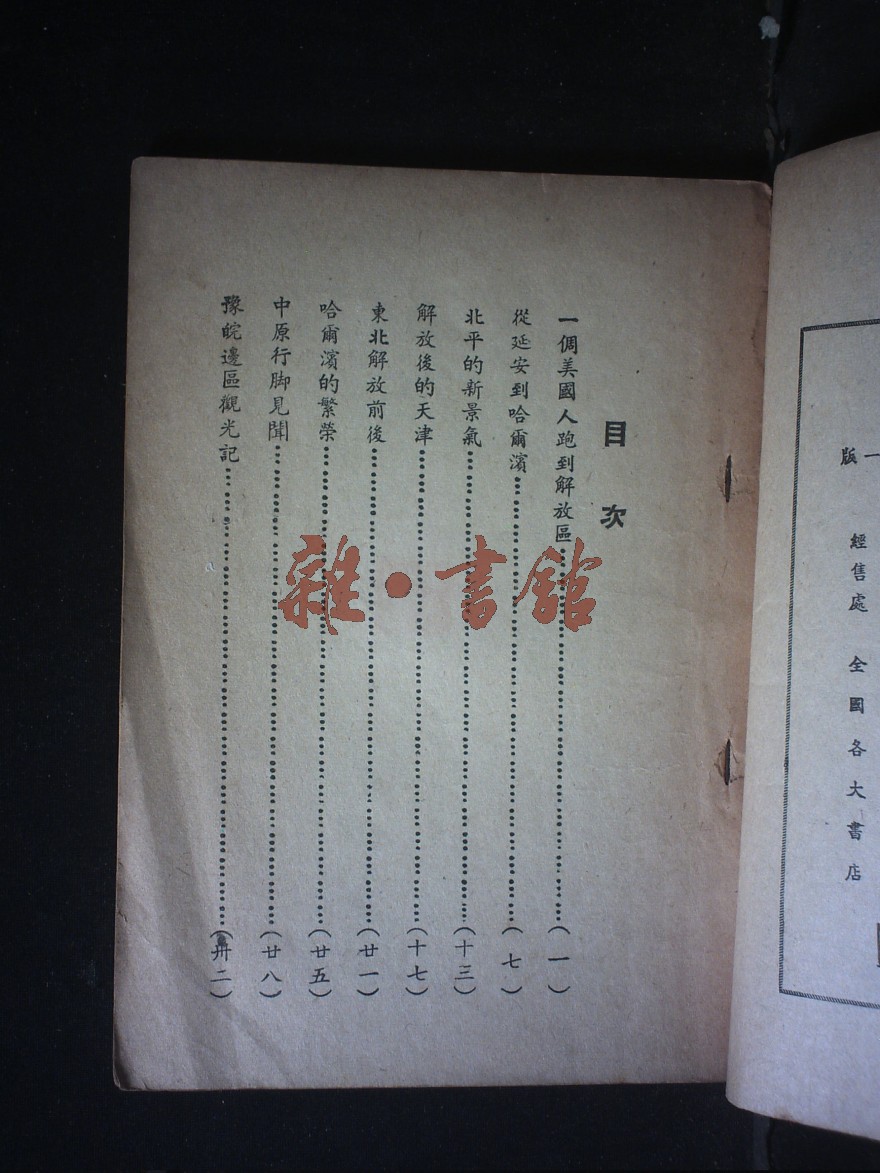 一版
經售處 全國各大書店
目次
一個美國人跑到解放區……(一)
從延安到哈爾濱……(七)
北平的新景氣……(十三)
解放後的天津……(十七)
東北解放前後……(廿一)
哈爾濱的繁榮……(廿五)
中原行脚見聞……(廿八)
豫皖邊區觀光記……(卅二)
雜·書館